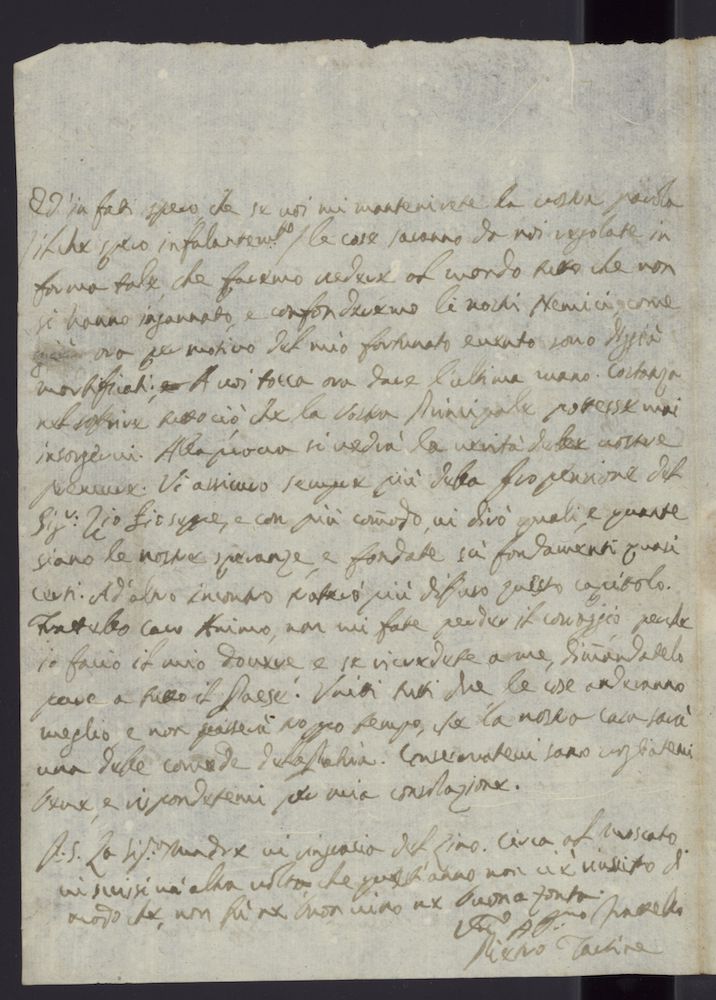 Ed' in fati spero, che se voi mi mantenirete la vostra parola
/ il che spero infalantem.te / le cose saranno da noi regolate in
forma tale, che faremo vedere al mondo tutto che non
si hanno ingannato, e confonderemo li nostri Nemici, come
ora per motivo del mio fortunato evento sono di già
mortificati. A voi tocca ora dare l'ultima mano. Costanza
nel soffrire tutto ciò, che la vostra Principale potesse mai
insorgervi. Alla prova si vedrà la verità delle vostre
premure. Vi assicuro sempre più della propensione del
Sig.r Zio Giuseppe, e con più com̃odo, vi dirò quali, e quante
siano le nostre speranze, e fondate sù fondamenti quasi
certi. Ad altro incontro tratterò più diffuso questo capitolo.
Fratello caro Animo, non mi fate perder il coraggio perche
io faccio il mio dovere e se ricredete a me, dim̃andatelo
pure a tutto il Paese. Uniti tutti due le cose anderanno
meglio, e non passerà troppo tempo, che la nostra Casa sarà
una delle comode della Patria. Conservatevi sano vogliatemi
bene, e rispondetemi per mia consolazione.
P.S. La Sig.ra Madre vi ringrazia del Lino. Circa al Moscato
vi scrissi un' altra volta, che quest'anno non vi è riuscito di
modo che, non fù ne buon vino ne buona
V.ro Aff.mo Fratello
Pietro